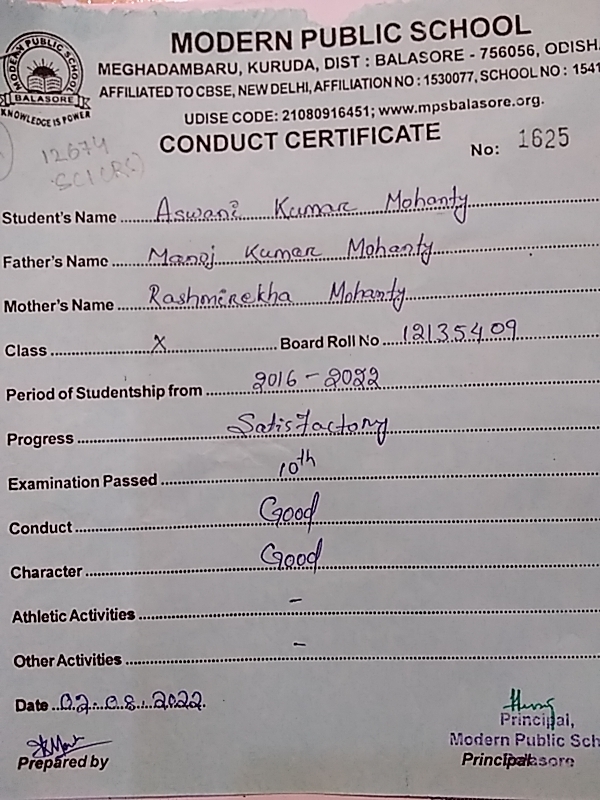 MODERN PUBLIC SCHOOL
MEGHADAMBARU, KURUDA, DIST : BALASORE - 756056, ODISHA
AFFILIATED TO CBSE, NEW DELHI, AFFILIATION NO : 1530077, SCHOOL NO : 1541
UDISE CODE: 21080916451; www.mpsbalasore.org.
MODERN PUBLIC SCHOOL
BALASORE
KNOWLEDGE IS POWER
CONDUCT CERTIFICATE
No: 1625
12674
Student's Name Aswani Kumar Mohanty
Father's Name Manoj Kumar Mohanty
Mother's Name Rashmirekha Mohanty
Class X Board Roll No 12135409
Period of Studentship from 2016 - 2022
Progress Satisfactory
Examination Passed 10th
Conduct Good
Character Good
Athletic Activities -
Other Activities -
Date 02.08.2022.
Principal,
Modern Public Sch
Balasore
Prepared by Principal